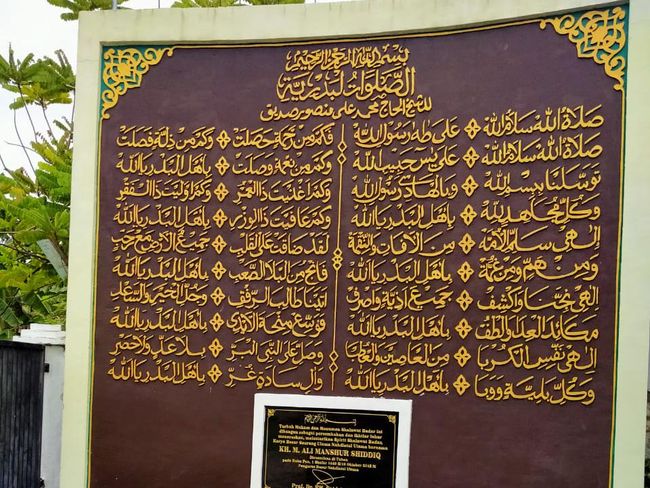 بسم الله الرحمن الرحيم
الصلوات البدرية
للشيخ الحاج محمد علي منصور صديق
صلاة الله سلام الله على طه رسول الله
صلاة الله سلام الله على يس حبيب الله
توسلنا ببسم الله وبالهادي رسول الله
وكل مجاهد لله باهل البدر يا الله
الهي سلم الامة من الافات والنقمة
ومن هم ومن غمة باهل البدر يا الله
الهي نجنا واكشف جميع اذية واصرف
مكائد العدا والطف باهل البدر يا الله
الهي نفس الكربا من العاصين والعطبا
وكل بلية ووبا باهل البدر يا الله
فكم من رحمة حصلت وكم من ذلة فصلت
وكم من نعمة وصلت باهل البدر يا الله
وكم اغنيت ذا العمر وكم اوليت ذا الفقر
وكم عافيت ذا الوزر باهل البدر يا الله
لقد ضاقت على القلب جميع الارض مع رحب
فانج من البلا الصعب باهل البدر يا الله
اتينا طالب الرفق وجل الخير والسعد
فوسع منحة الايدي باهل البدر يا الله
وصل على النبي البر بلا عد ولا حصر
وآل سادة غر باهل البدر يا الله
Turbah Makam dan Monumen Shalawat Badar ini
dibangun sebagai persembahan dan ikhtiar luhur
meneruskan, melestarikan Spirit Shalawat Badar,
Karya Besar Seorang Ulama Nahdlatul Ulama bernama
KH. M. ALI MANSHUR SHIDDIQ
Diresmikan di Tuban
Pengurus Besar Nahdlatul Ulama